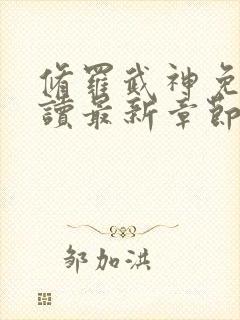 脩羅武神免
讀最新章節
邹加洪